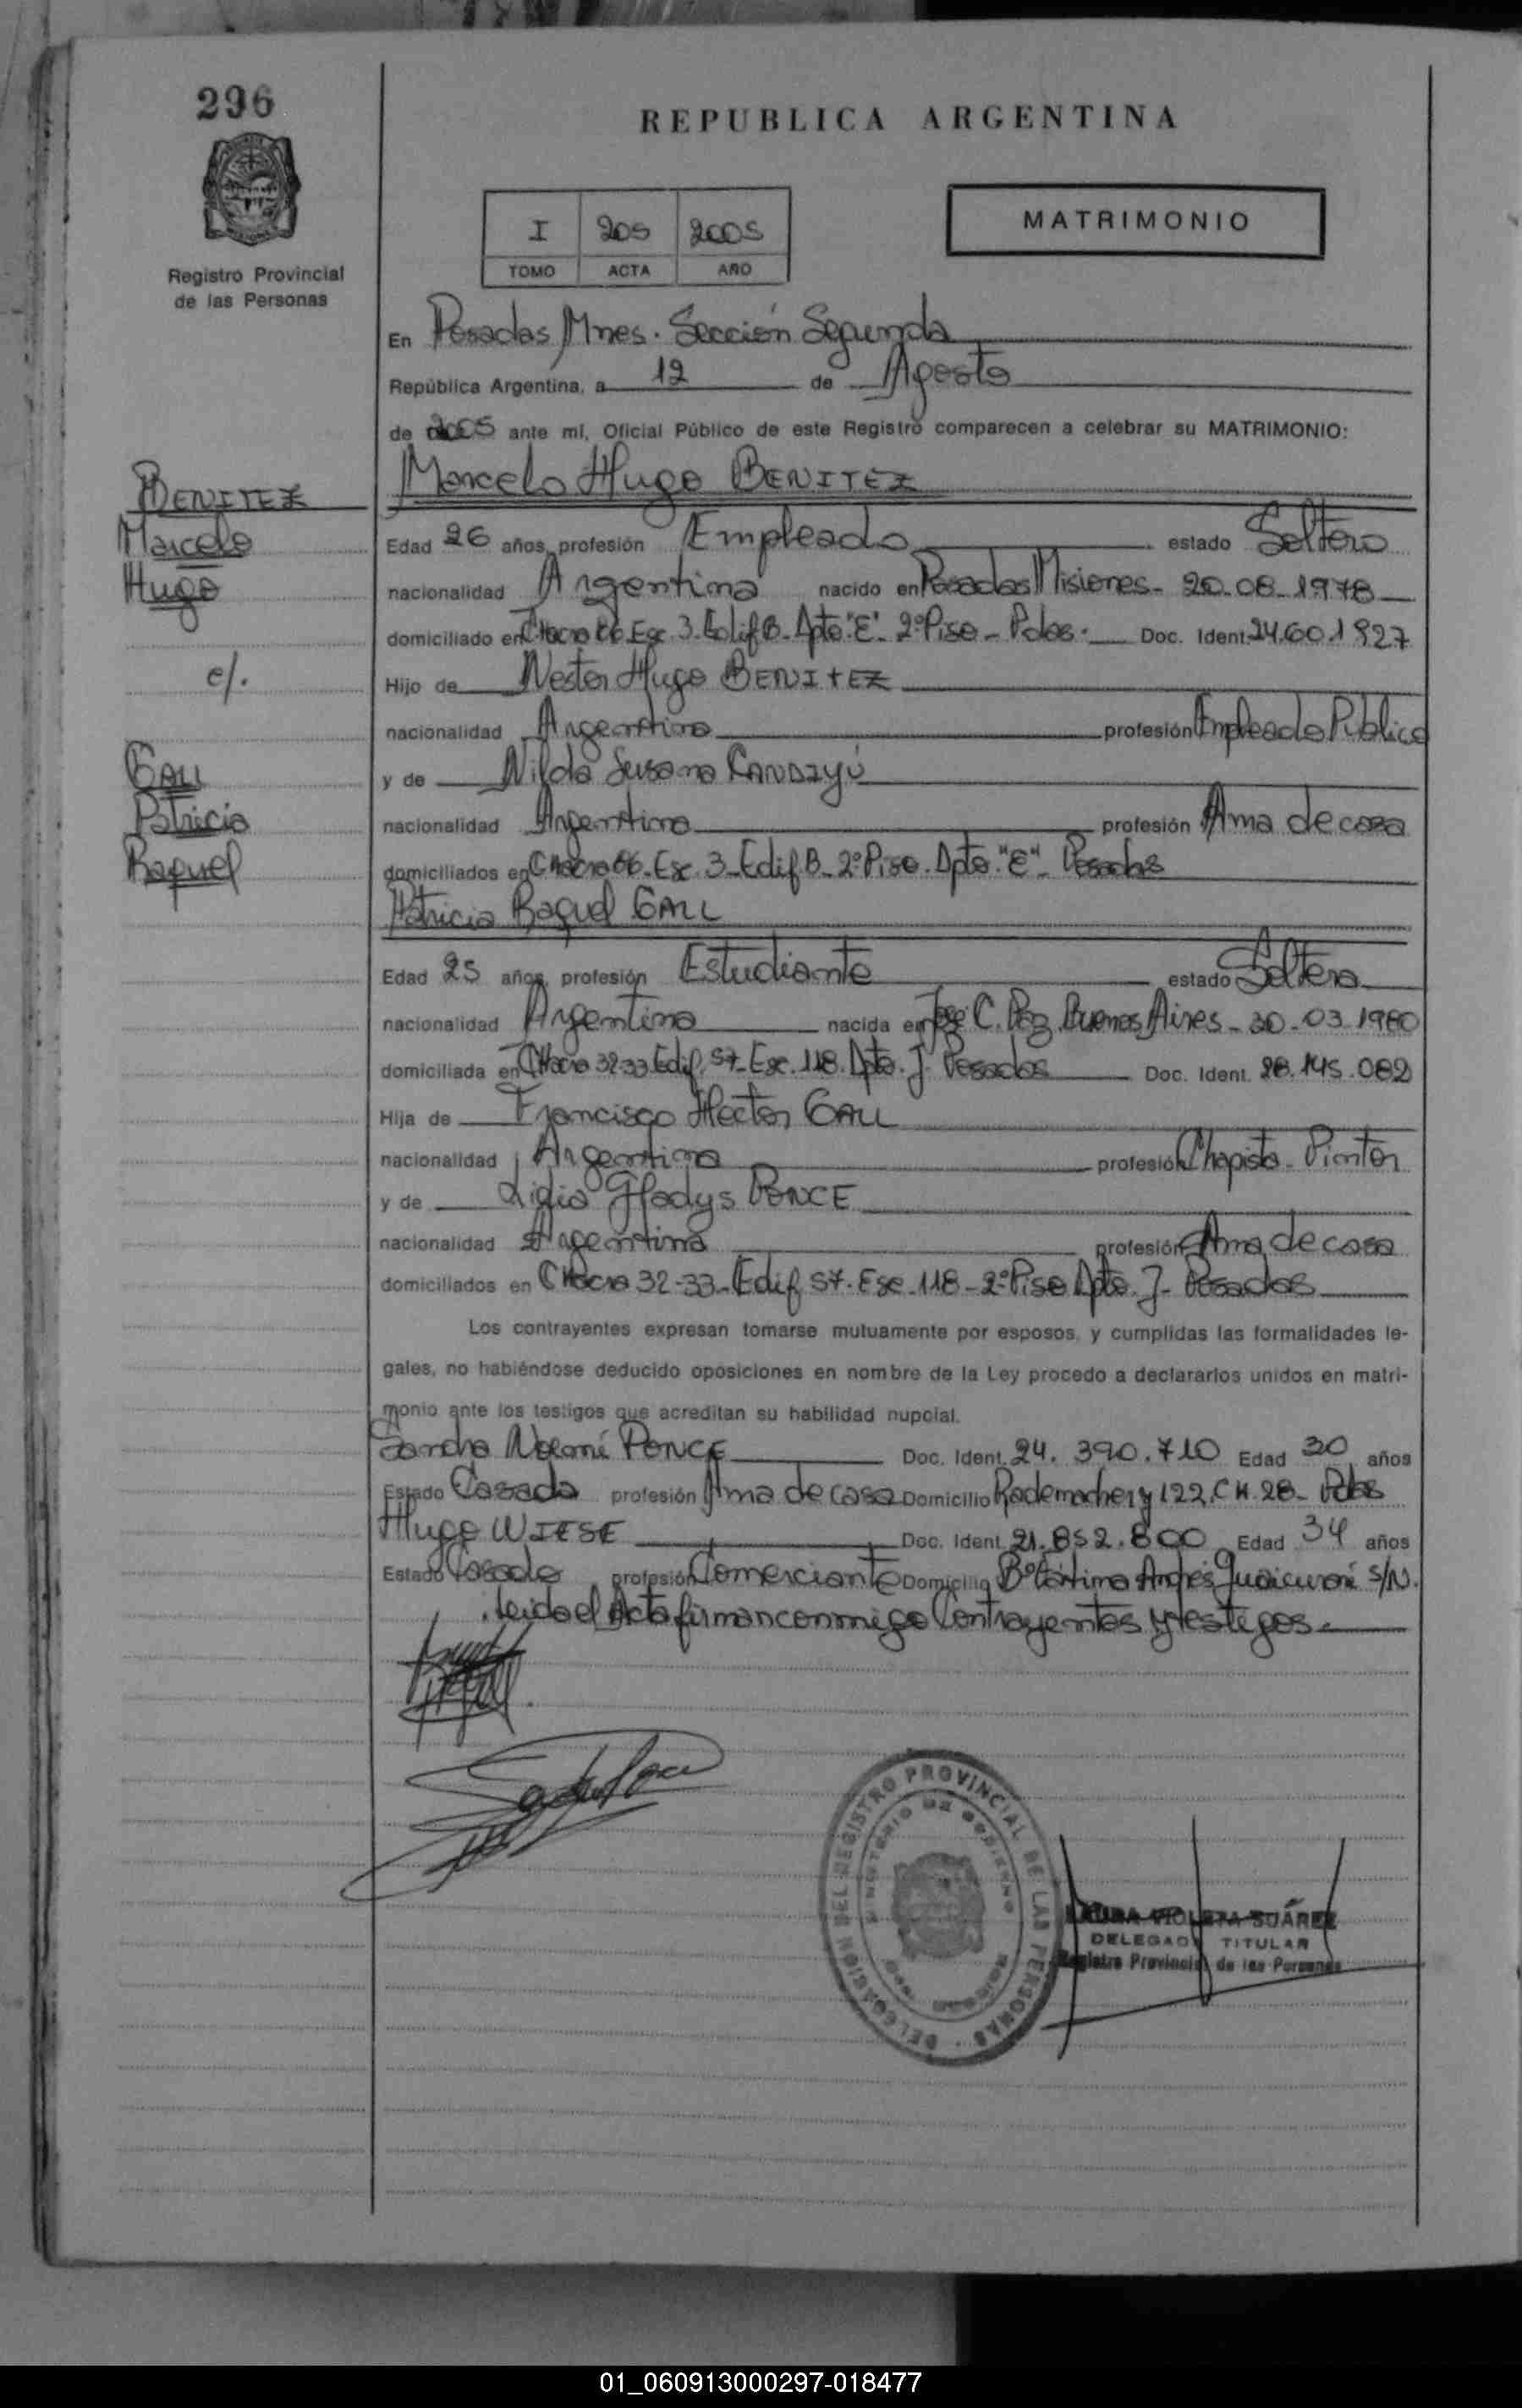 296
REPUBLICA ARGENTINA
I 205 2005
TOMO ACTA AÑO
MATRIMONIO
Registro Provincial
de las Personas
En Posadas, Mnes. Sección Segunda
República Argentina, a 12 de Agosto
de 2005 ante mí, Oficial Público de este Registro comparecen a celebrar su MATRIMONIO:
BENITEZ
Marcelo
Hugo
c/.
GALL
Patricia
Raquel
Marcelo Hugo BENITEZ
Edad 26 años, profesión Empleado estado Soltero
nacionalidad Argentina nacido en Posadas Misiones - 20-08-1978
domiciliado en Chacra 66 Esc. 3 Edif B - Dpto "E" - 2º Piso - Pdas. Doc. Ident. 24.601.927
Hijo de Nestor Hugo BENITEZ
nacionalidad Argentina profesión Empleado Público
y de Nilda Susana
nacionalidad Argentina profesión Ama de casa
domiciliados en Chacra 66 - Esc. 3 - Edif B - 2º Piso. Dpto. "E" - Posadas
Patricia Raquel GALL
Edad 25 años, profesión Estudiante estado Soltera
nacionalidad Argentina nacida en José C. Paz, Buenos Aires - 30-03-1980
domiciliada en Chacra 32-33 Edif. 57 - Esc. 118. Dpto. J - Posadas Doc. Ident. 28.145.082
Hija de Francisco Hector GALL
nacionalidad Argentina profesión Chapista - Pintor
y de Lidia Gladys PONCE
nacionalidad Argentina profesión Ama de casa
domiciliados en Chacra 32-33 - Edif 57 - Esc - 118 - 2º Piso Dpto. J - Posadas
Los contrayentes expresan tomarse mutuamente por esposos, y cumplidas las formalidades le-
gales, no habiéndose deducido oposiciones en nombre de la Ley procedo a declararlos unidos en matri-
monio ante los testigos que acreditan su habilidad nupcial.
Sandra Noemí PONCE Doc. Ident. 24.390.710 Edad 30 años
Estado Casada profesión Ama de casa Domicilio Rademacher y 122, CH. 28 - Pdas
Hugo WIESE Doc. Ident. 21.852.800 Edad 34 años
Estado Casado profesión Comerciante Domicilio Bº Andrés Guaicurarí S/N.
Leido el Acta firman conmigo Contrayentes y testigos.
DELEGACION DEL REGISTRO PROVINCIAL DE LAS PERSONAS
LAURA VIOLETA SUÁREZ
DELEGADO TITULAR
Registro Provincial de las Personas
01_060913000297-018477